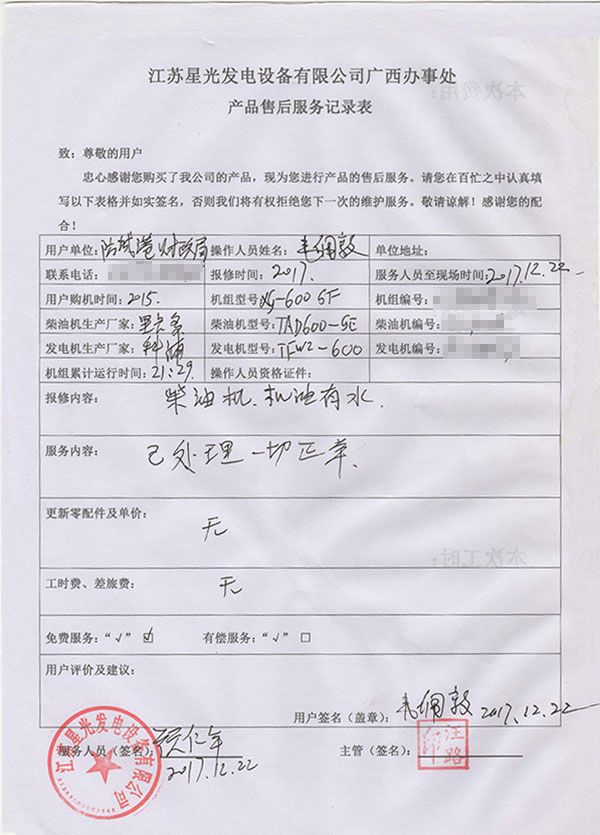 江苏星光发电设备有限公司广西办事处
产品售后服务记录表
致：尊敬的用户
忠心感谢您购买了我公司的产品，现为您进行产品的售后服务。请您在百忙之中认真填
写以下表格并如实签名，否则我们将有权拒绝您下一次的维护服务。敬请谅解！感谢您的配
合！
用户单位：防城港财政局 操作人员姓名： 单位地址：
联系电话： 报修时间：2017. 服务人员至现场时间：2017.12.22
用户购机时间：2015. 机组型号：XG-600GF 机组编号：
柴油机生产厂家： 柴油机型号：TAD600-GE 柴油机编号：
发电机生产厂家： 发电机型号：TFW2-600 发电机编号：
机组累计运行时间：21:29 操作人员资格证件：
报修内容：柴油机、机油有水.
服务内容：已处理一切正常.
更新零配件及单价：无
工时费、差旅费：无
免费服务：“√” ☑ 有偿服务：“√” □
用户评价及建议：
用户签名（盖章）： 2017.12.22
服务人员（签名）： 主管（签名）：
2017.12.22
江苏星光发电设备有限公司
汪路印
本次费用：
本次工时：